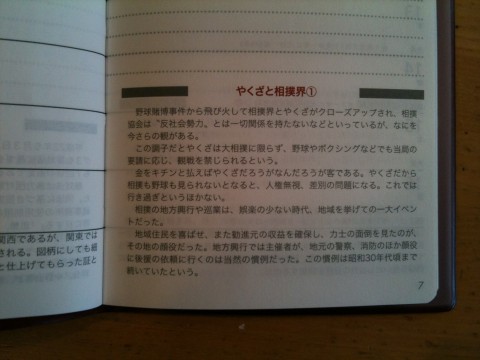 やくざと相撲界①
野球賭博事件から飛び火して相撲界とやくざがクローズアップされ、相撲
協会は“反社会勢力〟とは一切関係を持たないなどといっているが、なにを
今さらの観がある。
この調子だとやくざは大相撲に限らず、野球やボクシングなどでも当局の
要請に応じ、観戦を禁じられるという。
金をキチンと払えばやくざだろうがなんだろうが客である。やくざだから
相撲も野球も見られないとなると、人権無視、差別の問題になる。これでは
行き過ぎというほかない。
相撲の地方興行や巡業は、娯楽の少ない時代、地域を挙げての一大イベ
ントだった。
地域住民を喜ばせ、また勧進元の収益を確保し、力士の面倒を見たのが、
その地の顔役だった。地方興行では主催者が、地元の警察、消防のほか顔役
に後援の依頼に行くのは当然の慣例だった。この慣例は昭和30年代頃まで
続いていたという。
7
関西であるが、関東では
される。図柄にしても細
と仕上げてもらった証と